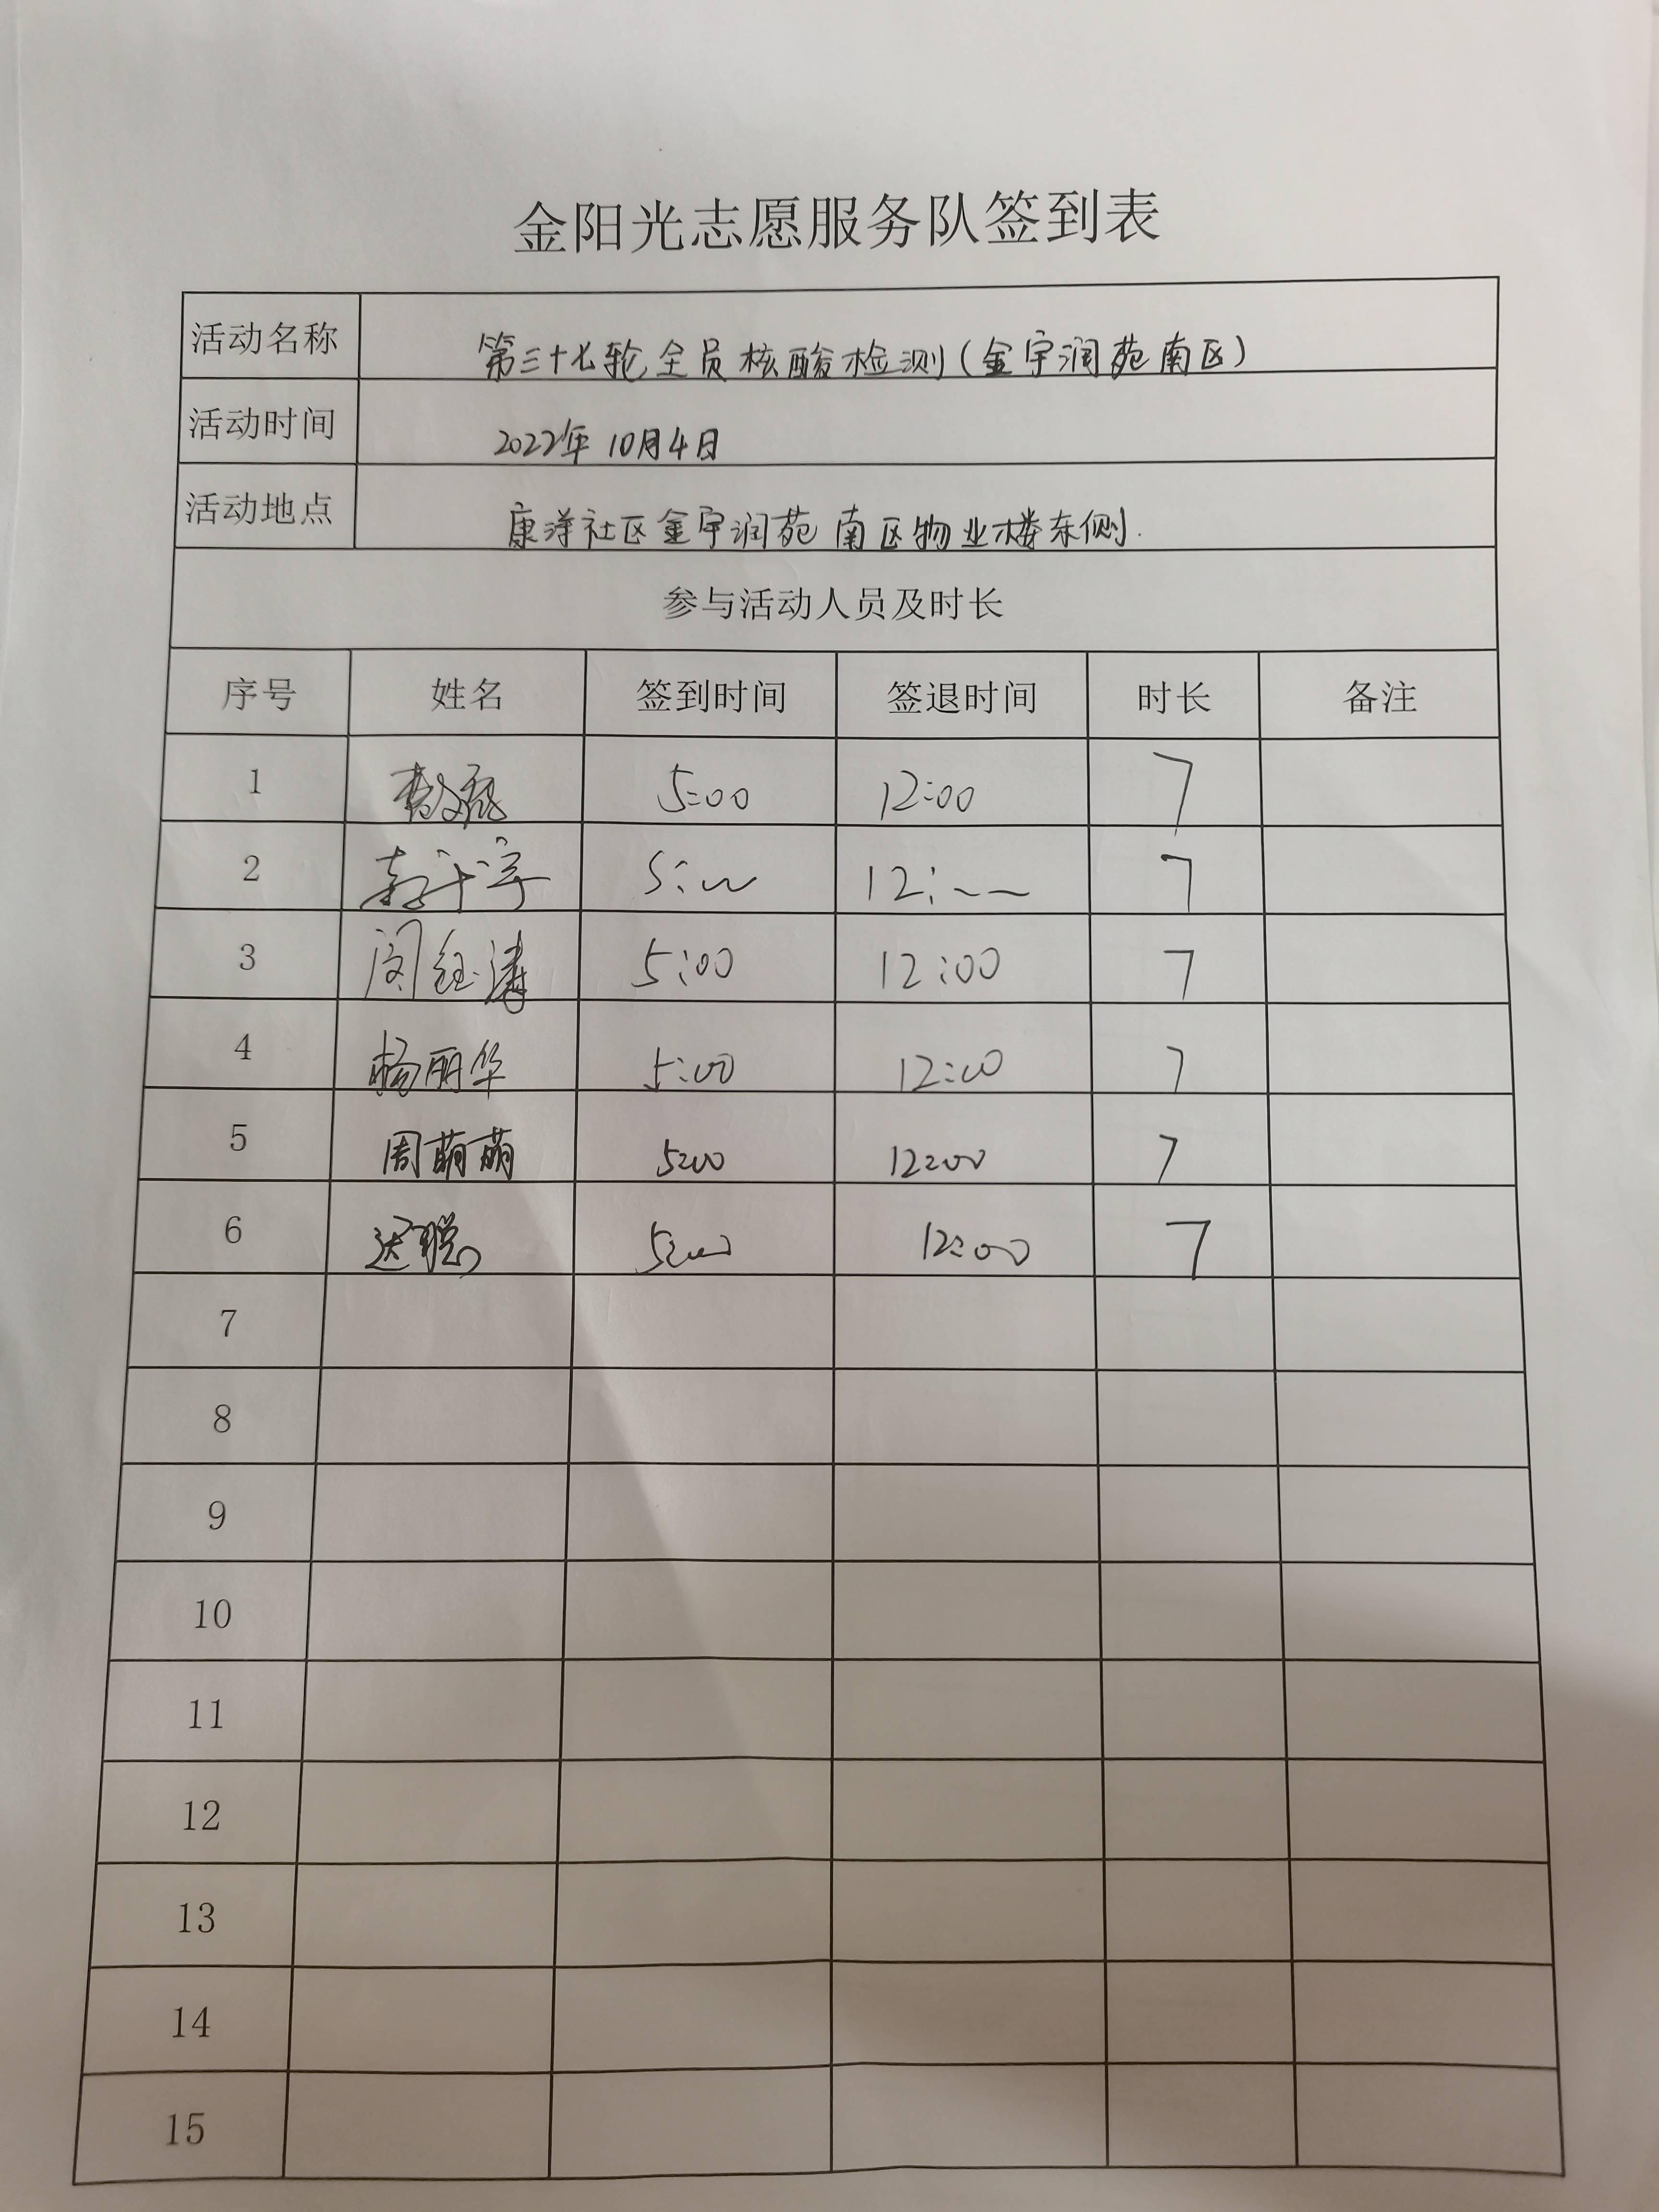 金阳光志愿服务队签到表
活动名称 第三十七轮全员核酸检测(金宇润苑南区)
活动时间 2022年10月4日
活动地点 康洋社区金宇润苑南区物业楼东侧.
参与活动人员及时长
序号 姓名 签到时间 签退时间 时长 备注
1 5:00 12:00 7
2 5: 12: 7
3 闵钰涛 5:00 12:00 7
4 杨丽华 5:00 12:00 7
5 周萌萌 5:00 12:00 7
6 迟聪 5:00 12:00 7
7
8
9
10
11
12
13
14
15